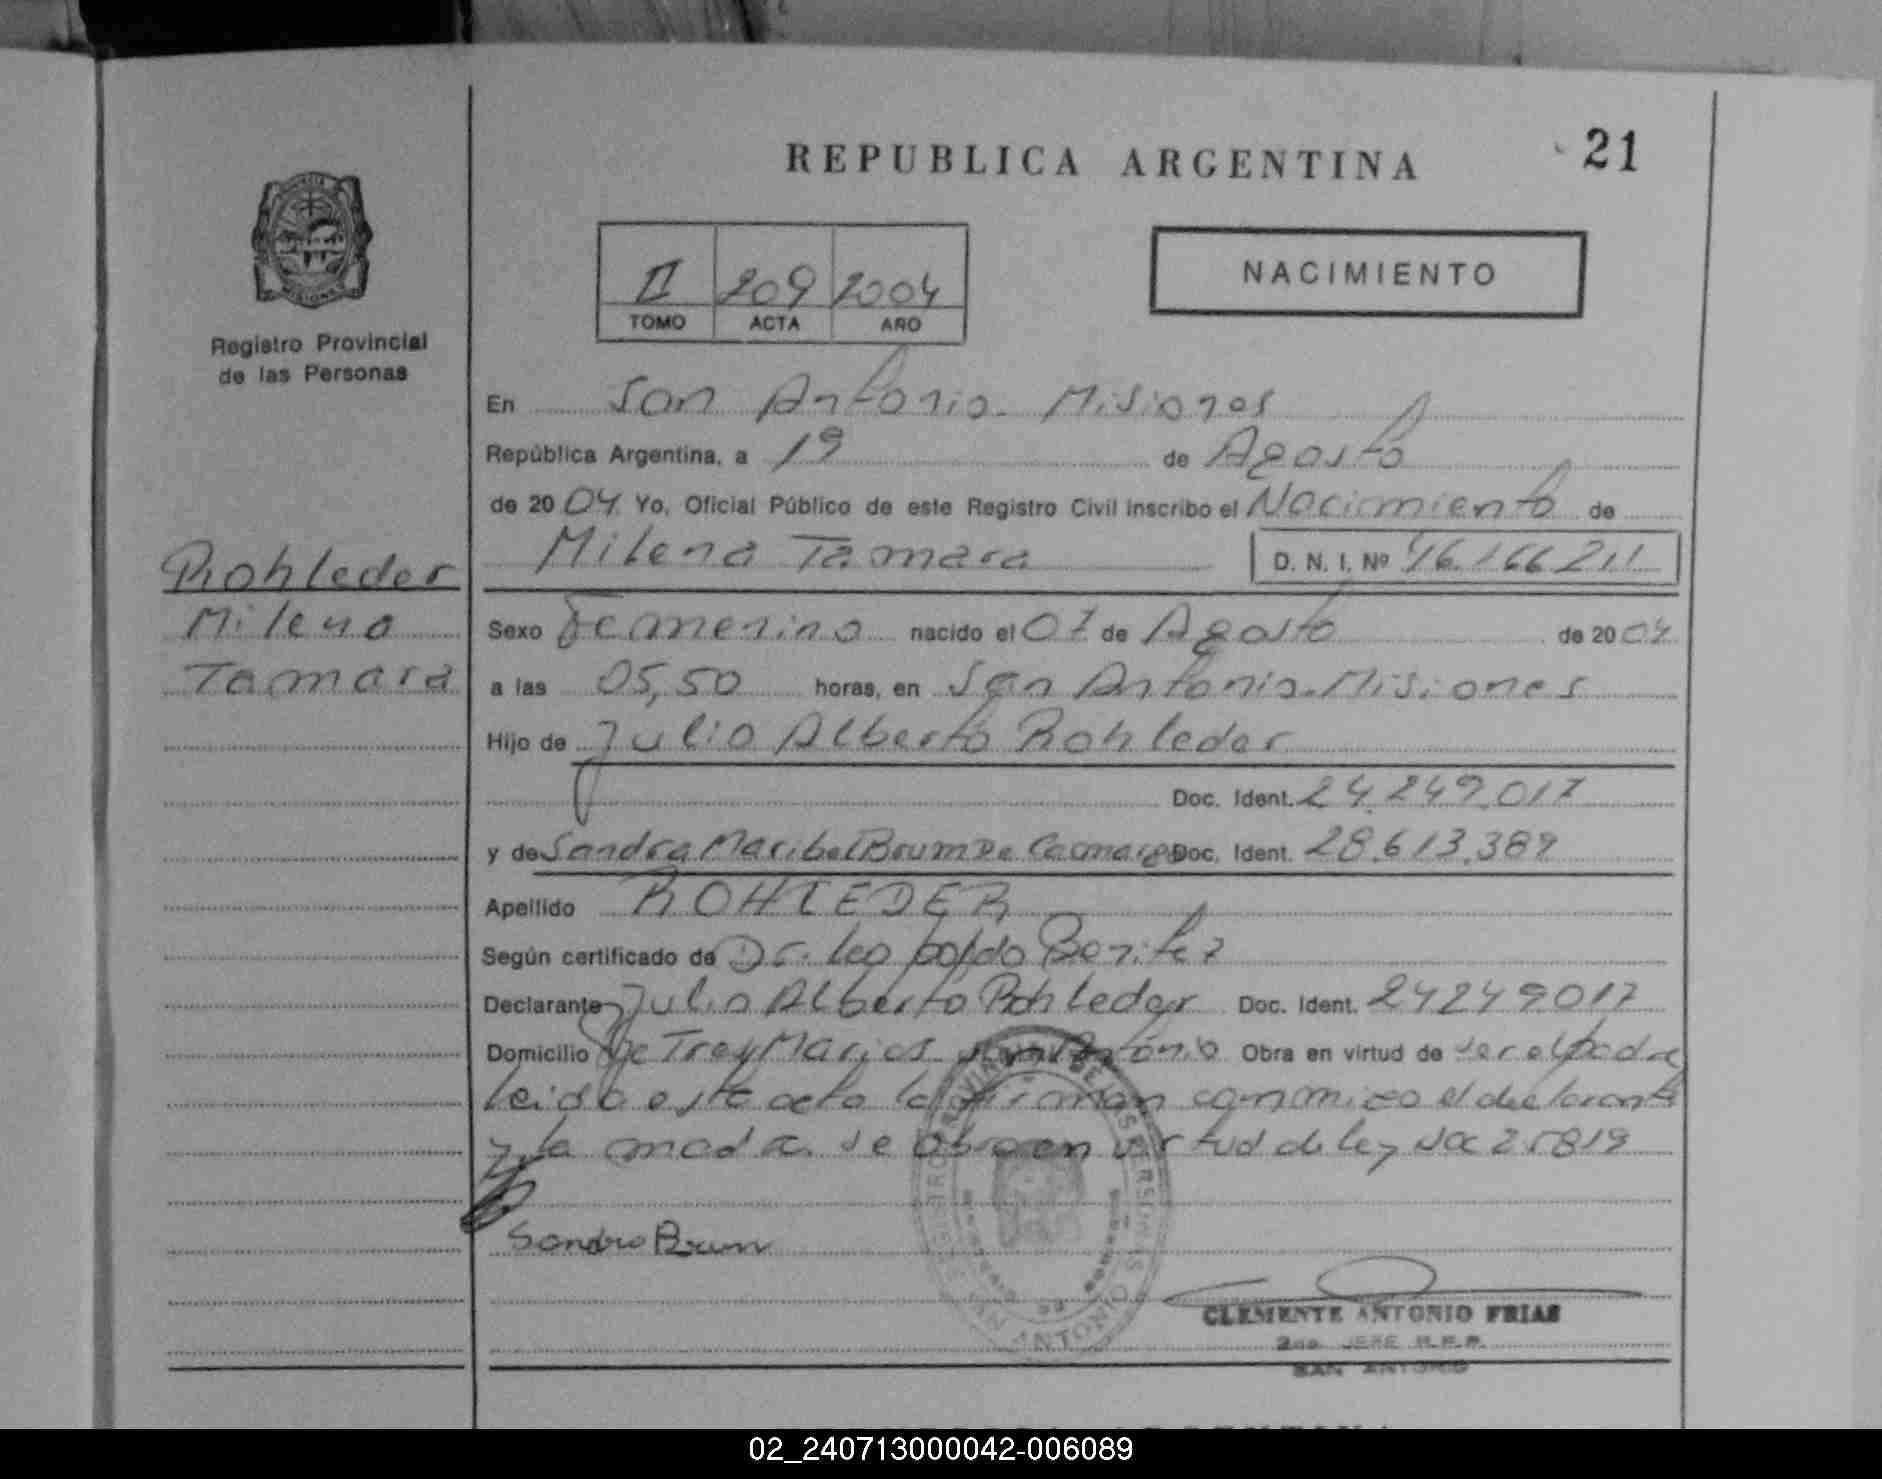 REPUBLICA ARGENTINA
21
II 209 2004
TOMO ACTA AÑO
NACIMIENTO
Registro Provincial
de las Personas
En San Antonio - Misiones
República Argentina, a 19 de Agosto
de 2004 Yo, Oficial Público de este Registro Civil inscribo el Nacimiento de
Milena Tamara D. N. I. Nº 46.166.211
Rohleder
Milena
Tamara
Sexo Femenino nacido el 07 de Agosto de 2004
a las 05,50 horas, en San Antonio - Misiones
Hijo de Julio Alberto Rohleder
Doc. Ident. 24.249.017
y de Sandra Maribel Brum De Camargo Doc. Ident. 28.613.389
Apellido ROHLEDER
Según certificado de Dr. Leopoldo Benitez
Declarante Julio Alberto Rohleder Doc. Ident. 24249017
Domicilio Tres Marias San Antonio Obra en virtud de ser el padre
leida esta acta la firman conmigo el declarante
y la madre se obra en virtud de ley 25819
Sandra Brum
SAN ANTONIO
CLEMENTE ANTONIO FRIAS
2do JEFE R.P.P.
SAN ANTONIO
02_240713000042-006089